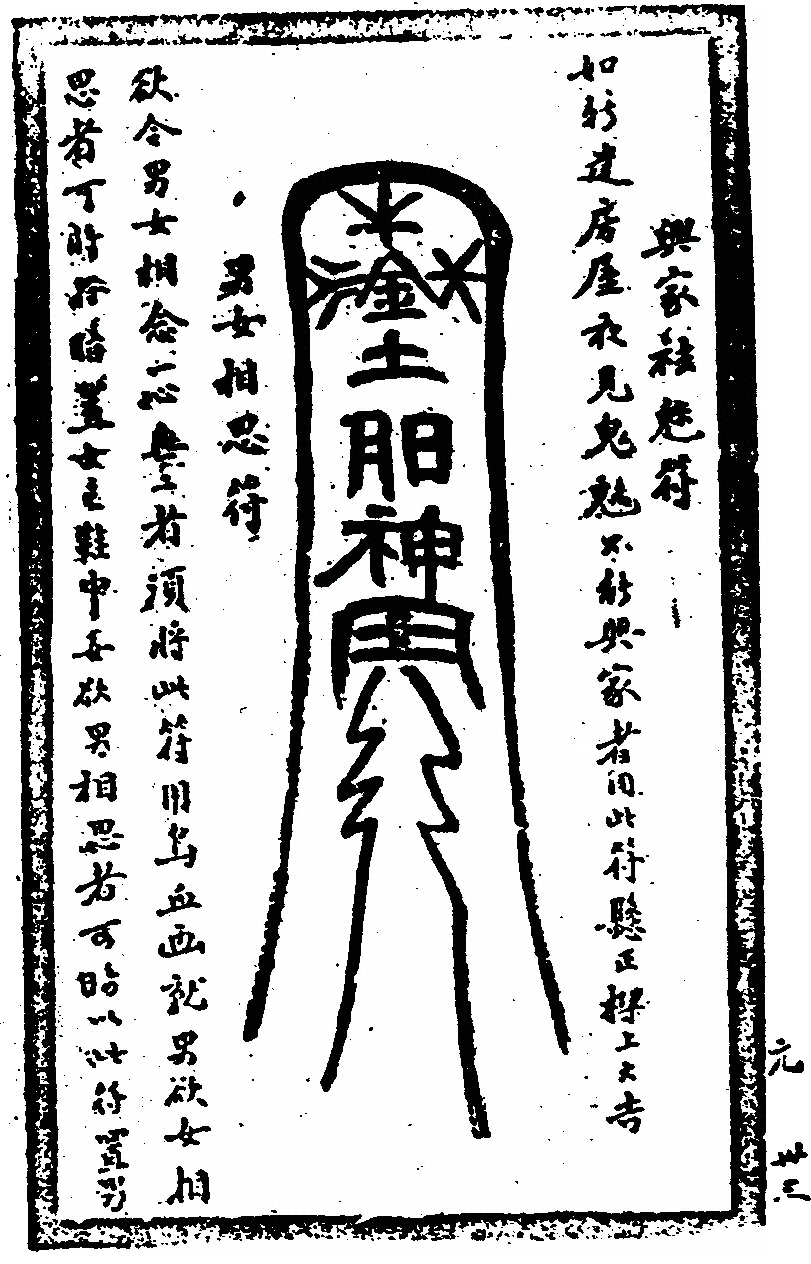 興家袪魅符
如新建房屋夜見鬼魅不能興家者用此符懸正樑上大吉
土
神
男女相思符
欲令男女相念心無二者須將此符用烏血画就男欲女相
思者可將符暗置女之鞋中女欲男相思者可暗以此符置男
元
卅三